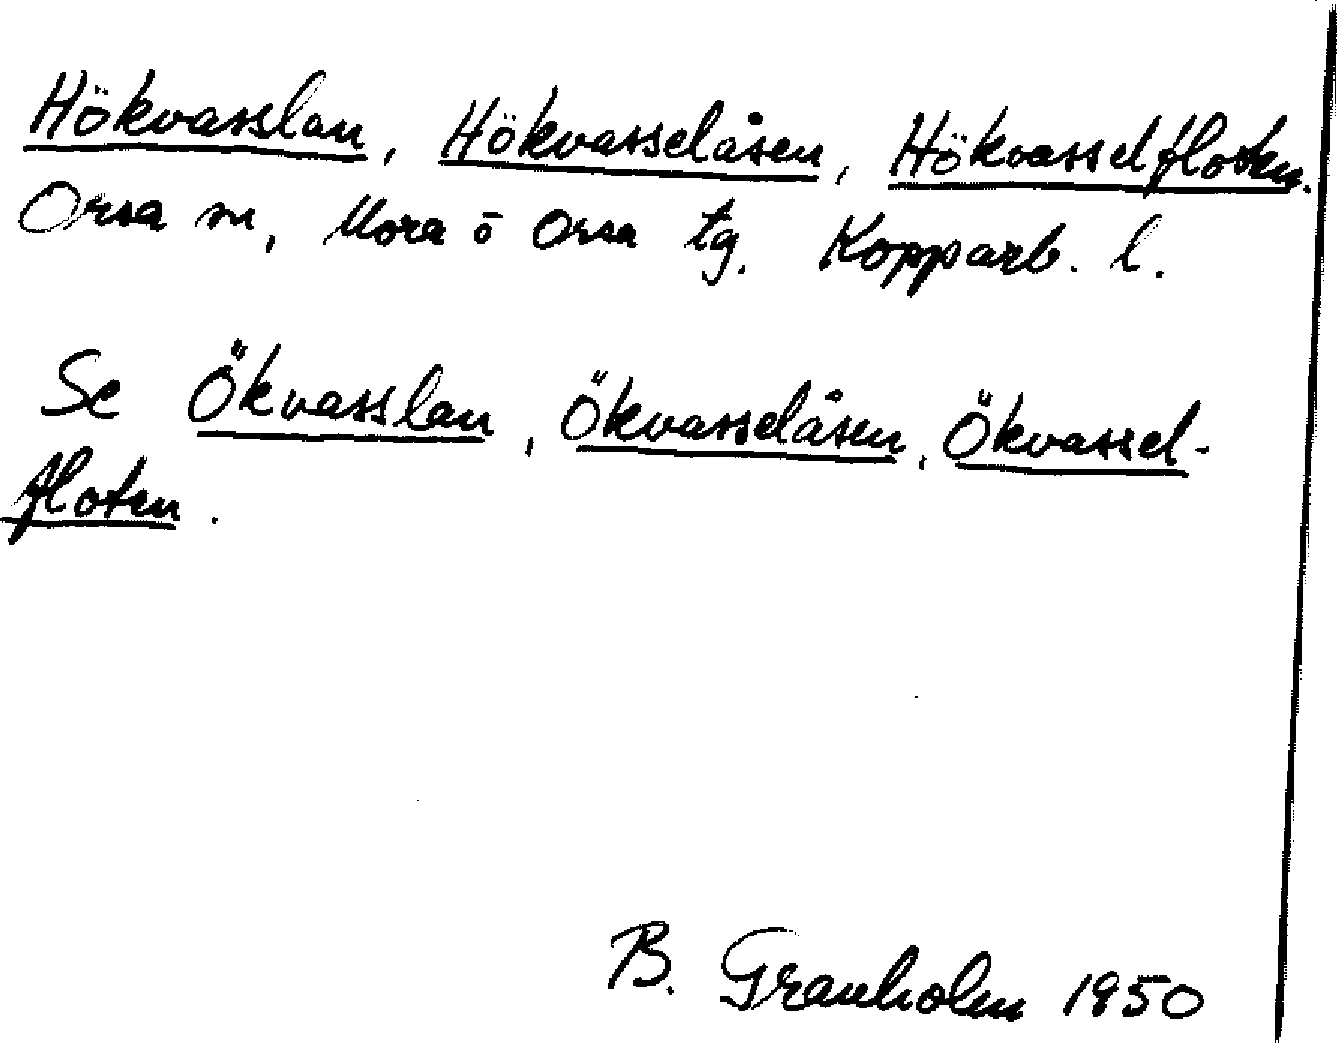 Hökvasslan, Hökvasselåsen, Hökvasselfloten.
Orsa sn, Mora o Orsa tg. Kopparb. l.
Se Ökvasslan, Ökvasselåsen, Ökvassel-
floten.
B. Granholm 1950